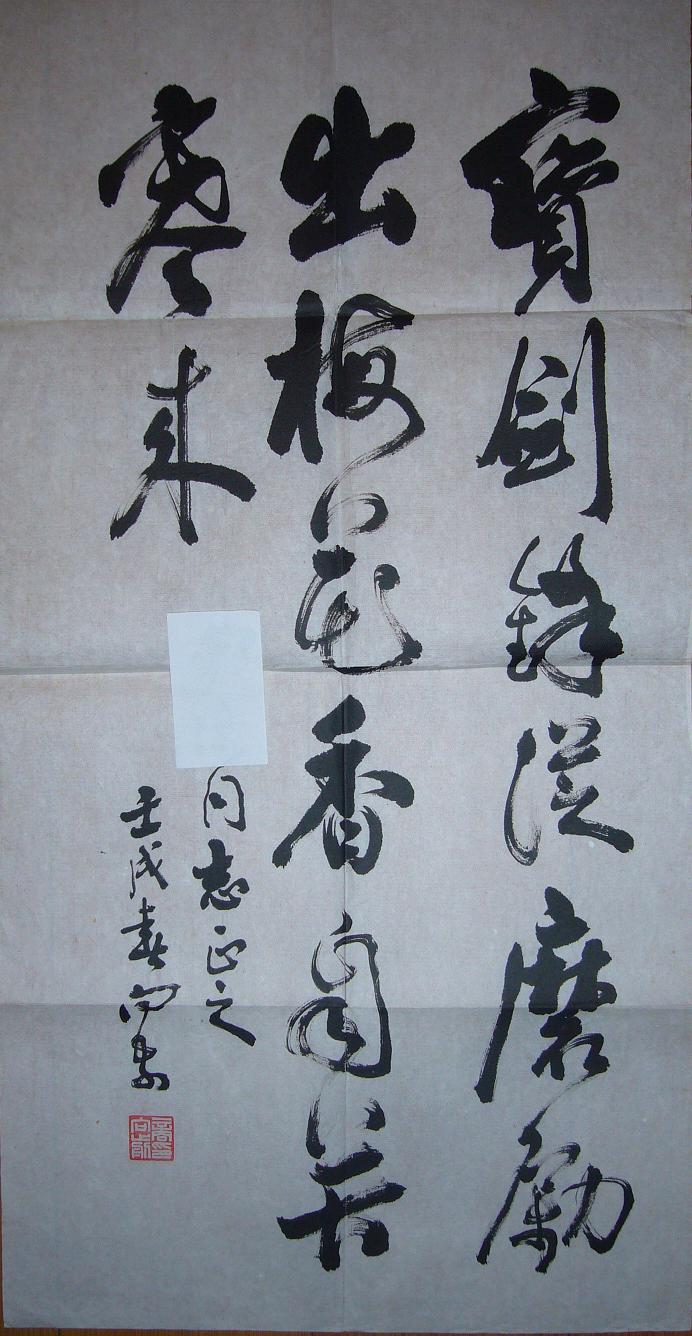 寶劍鋒從磨勵
出梅花香自苦
寒来
同志正之
壬戌春向